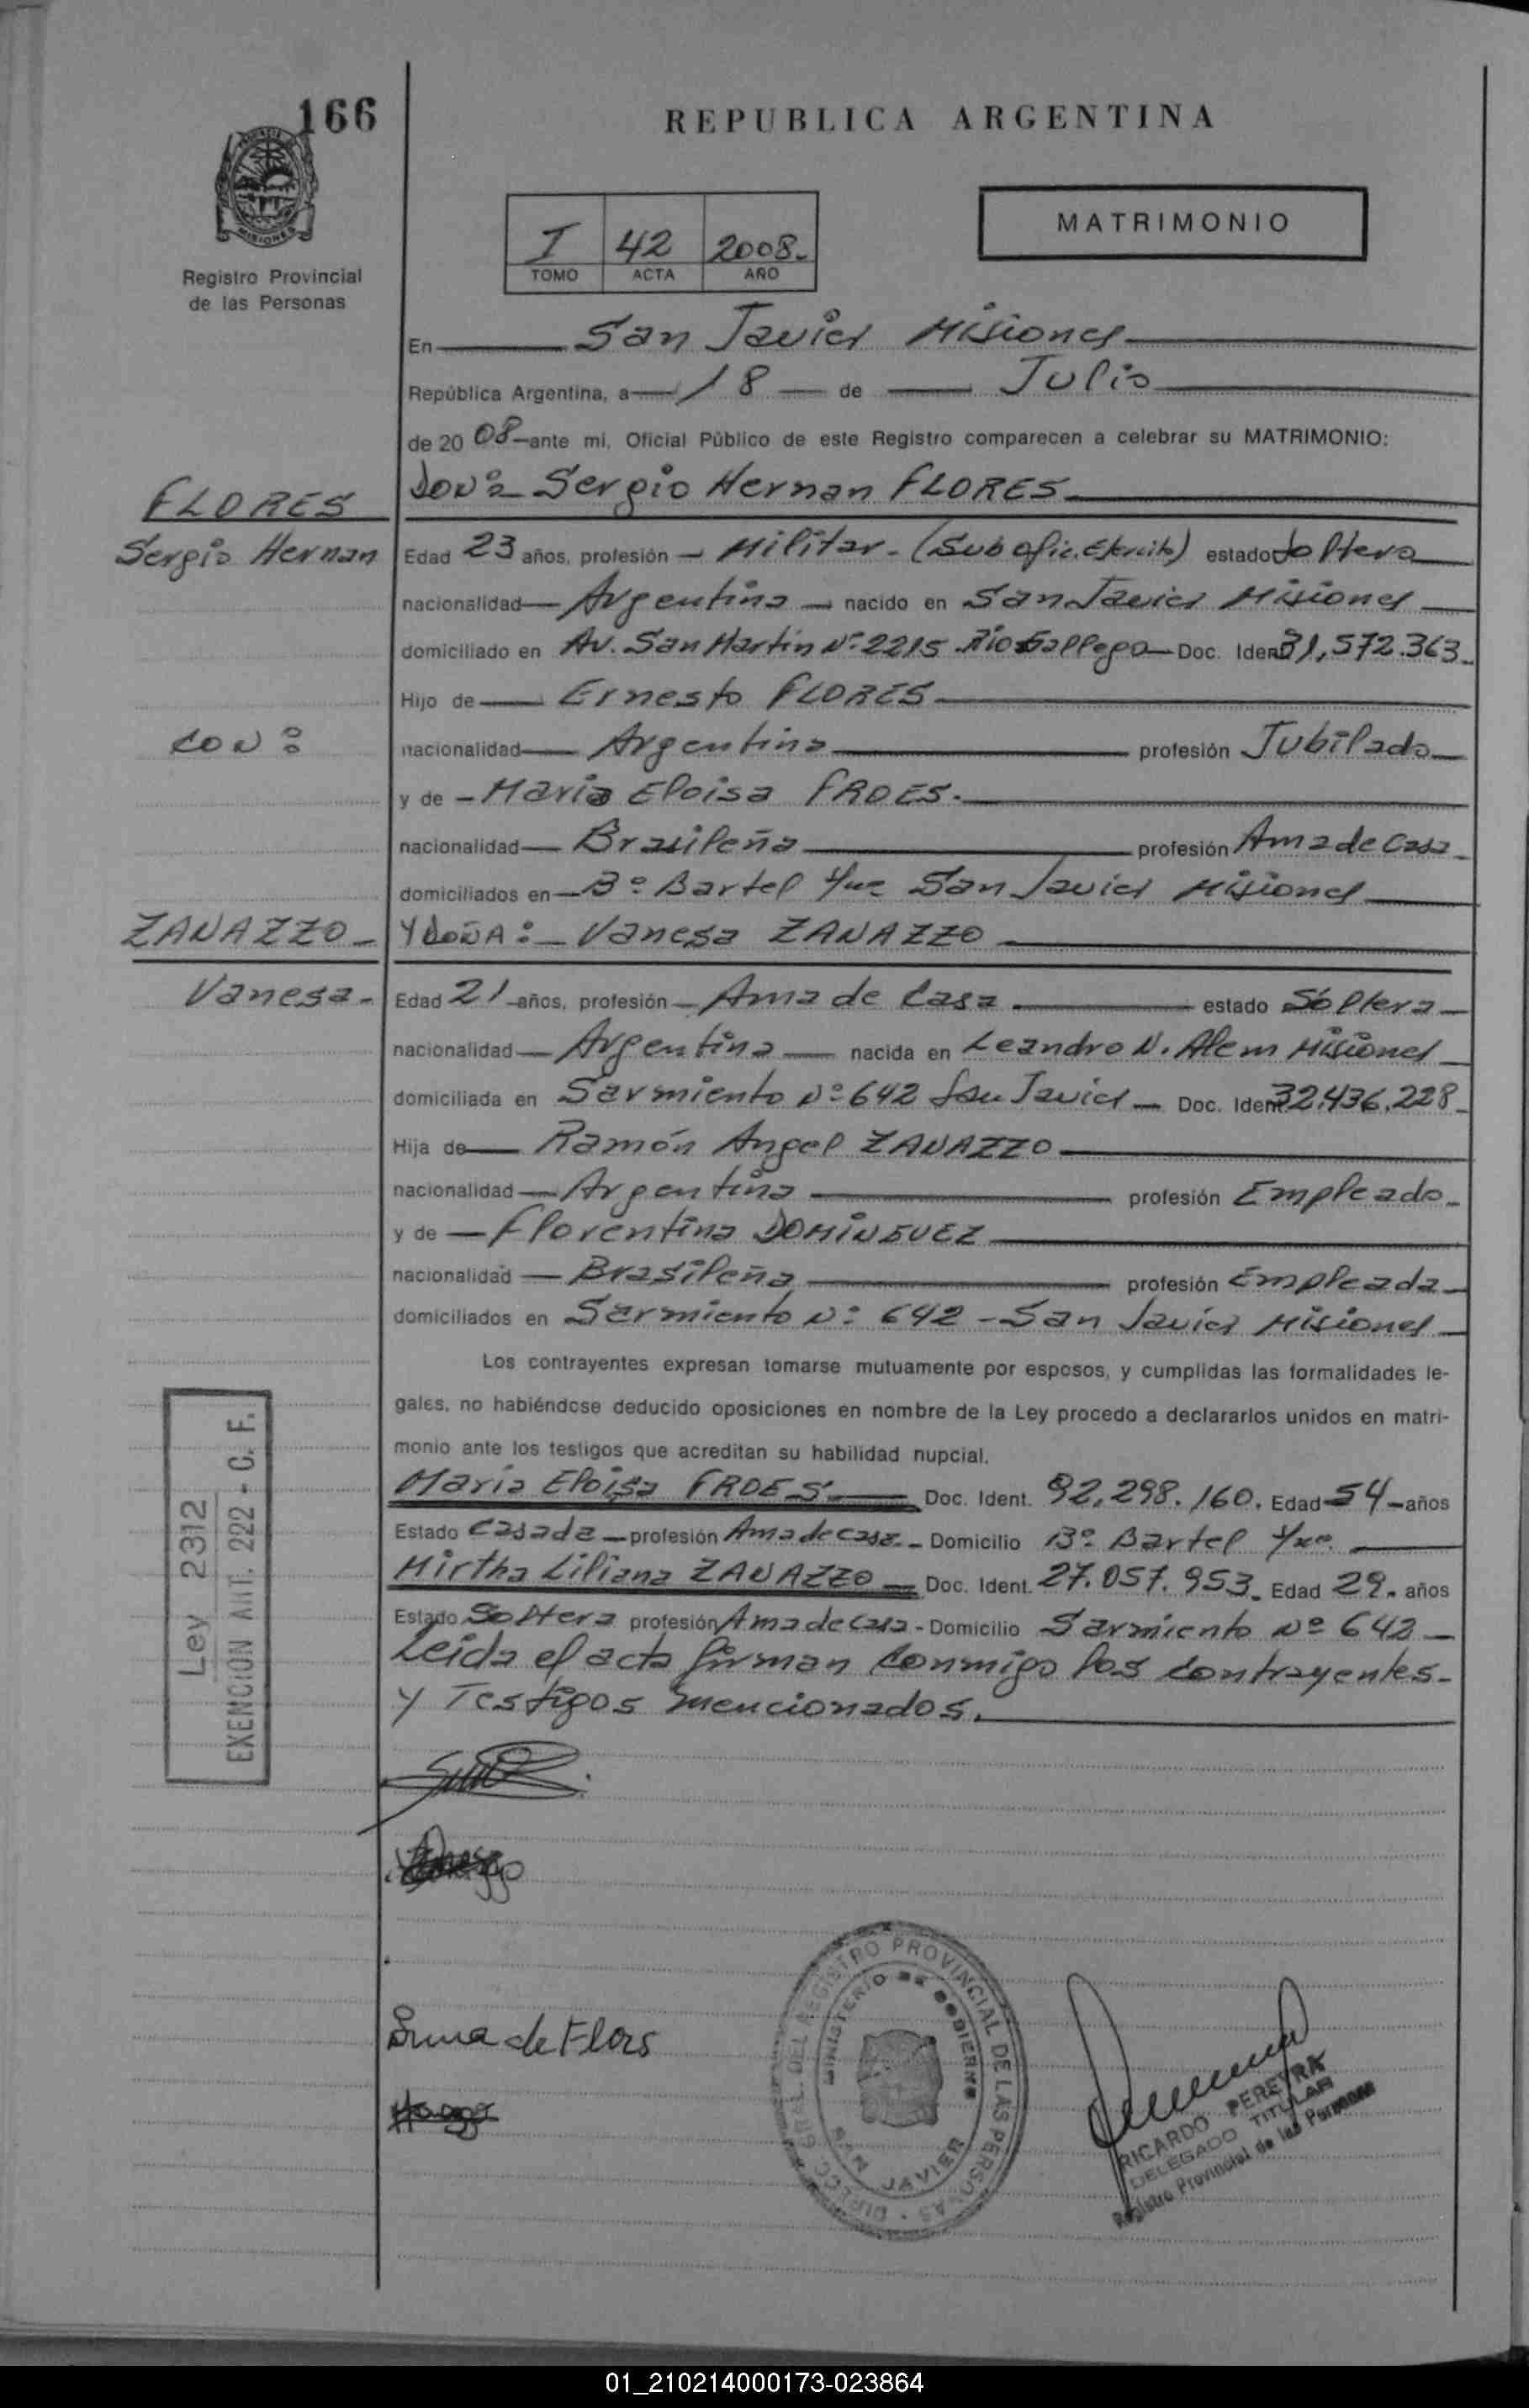 166
REPUBLICA ARGENTINA
MISIONES
Registro Provincial
de las Personas
I 42 2008.-
TOMO ACTA AÑO
MATRIMONIO
En San Javier Misiones
República Argentina, a 18 de Julio
de 20 08 ante mi, Oficial Público de este Registro comparecen a celebrar su MATRIMONIO:
DON: Sergio Hernan FLORES
FLORES
Sergio Hernan
Edad 23 años, profesión Militar - (Sub ofic. Ejercito) estado Soltero
nacionalidad Argentina nacido en San Javier Misiones
domiciliado en Av. San Martin Nº 2215 Rio Gallego Doc. Iden 31,572.363
Hijo de Ernesto FLORES
CON:
nacionalidad Argentina profesión Jubilado
y de Maria Eloisa FROES.
nacionalidad Brasileña profesión Ama de Casa
domiciliados en Bº Bartel San Javier Misiones
ZANAZZO
Y DOÑA: Vanesa ZANAZZO
Vanesa.
Edad 21 años, profesión Ama de Casa estado Soltera
nacionalidad Argentina nacida en Leandro N. Alem Misiones
domiciliada en Sarmiento Nº 642 San Javier Doc. Iden 32.436.228
Hija de Ramón Angel ZANAZZO
nacionalidad Argentina profesión Empleado
y de Florentina DOMINGUEZ
nacionalidad Brasileña profesión Empleada
domiciliados en Sarmiento Nº 642 - San Javier Misiones
Los contrayentes expresan tomarse mutuamente por esposos, y cumplidas las formalidades le-
gales, no habiéndose deducido oposiciones en nombre de la Ley procedo a declararlos unidos en matri-
monio ante los testigos que acreditan su habilidad nupcial.
Maria Eloisa FROES Doc. Ident. 92.298.160. Edad 54 años
Estado Casada profesión Ama de casa Domicilio Bº Bartel
Mirtha Liliana ZANAZZO Doc. Ident. 27.057.953 Edad 29 años
Estado Soltera profesión Ama de Casa - Domicilio Sarmiento Nº 642
Leida el acta firman conmigo los contrayentes
y Testigos mencionados.
Ley 2312
EXENCION ART. 222 - C. F.
de Flores
DIRECC. GRAL. DEL REGISTRO PROVINCIAL DE LAS PERSONAS
MINISTERIO DE GOBIERNO
SAN JAVIER
RICARDO PEREYRA
DELEGADO TITULAR
Registro Provincial de las Personas
01_210214000173-023864